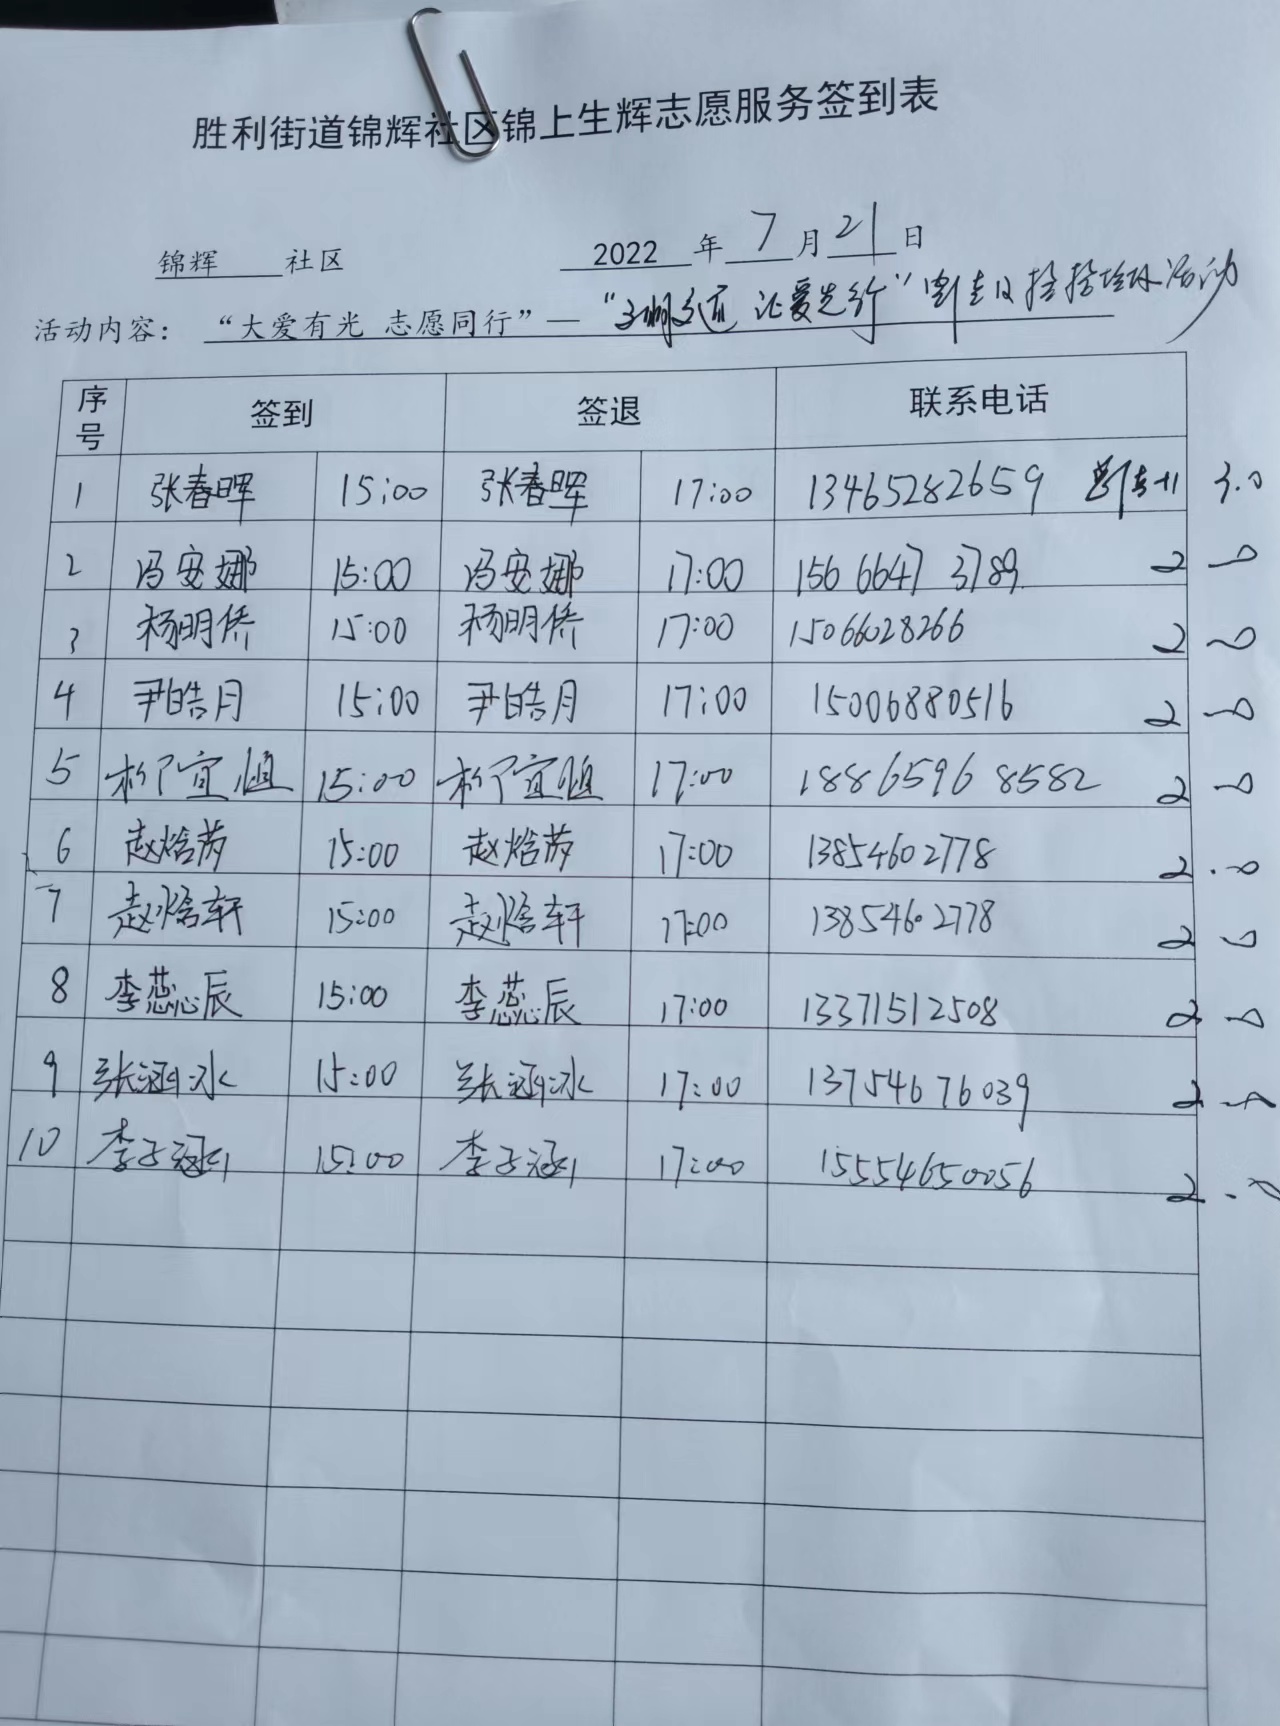 胜利街道锦辉社区锦上生辉志愿服务签到表
锦辉 社区 2022 年 7 月 21 日
活动内容： “大爱有光 志愿同行”— “文明交通 让爱先行” 活动
序号 签到 签退 联系电话
1 张春晖 15:00 张春晖 17:00 13465282659 3.0
2 冯安娜 15:00 冯安娜 17:00 156 6647 3789 2.0
3 杨明侨 15:00 杨明侨 17:00 15066028266 2.0
4 尹皓月 15:00 尹皓月 17:00 15006880516 2.0
5 15:00 17:00 1886596 8582 2.0
6 赵焓 15:00 赵焓 17:00 13854602778 2.0
7 赵焓轩 15:00 赵焓轩 17:00 13854602778 2.0
8 李蕊辰 15:00 李蕊辰 17:00 13371512508 2.0
9 张涵冰 15:00 张涵冰 17:00 13754676039 2.0
10 李子涵 15:00 李子涵 17:00 15554650056 2.0